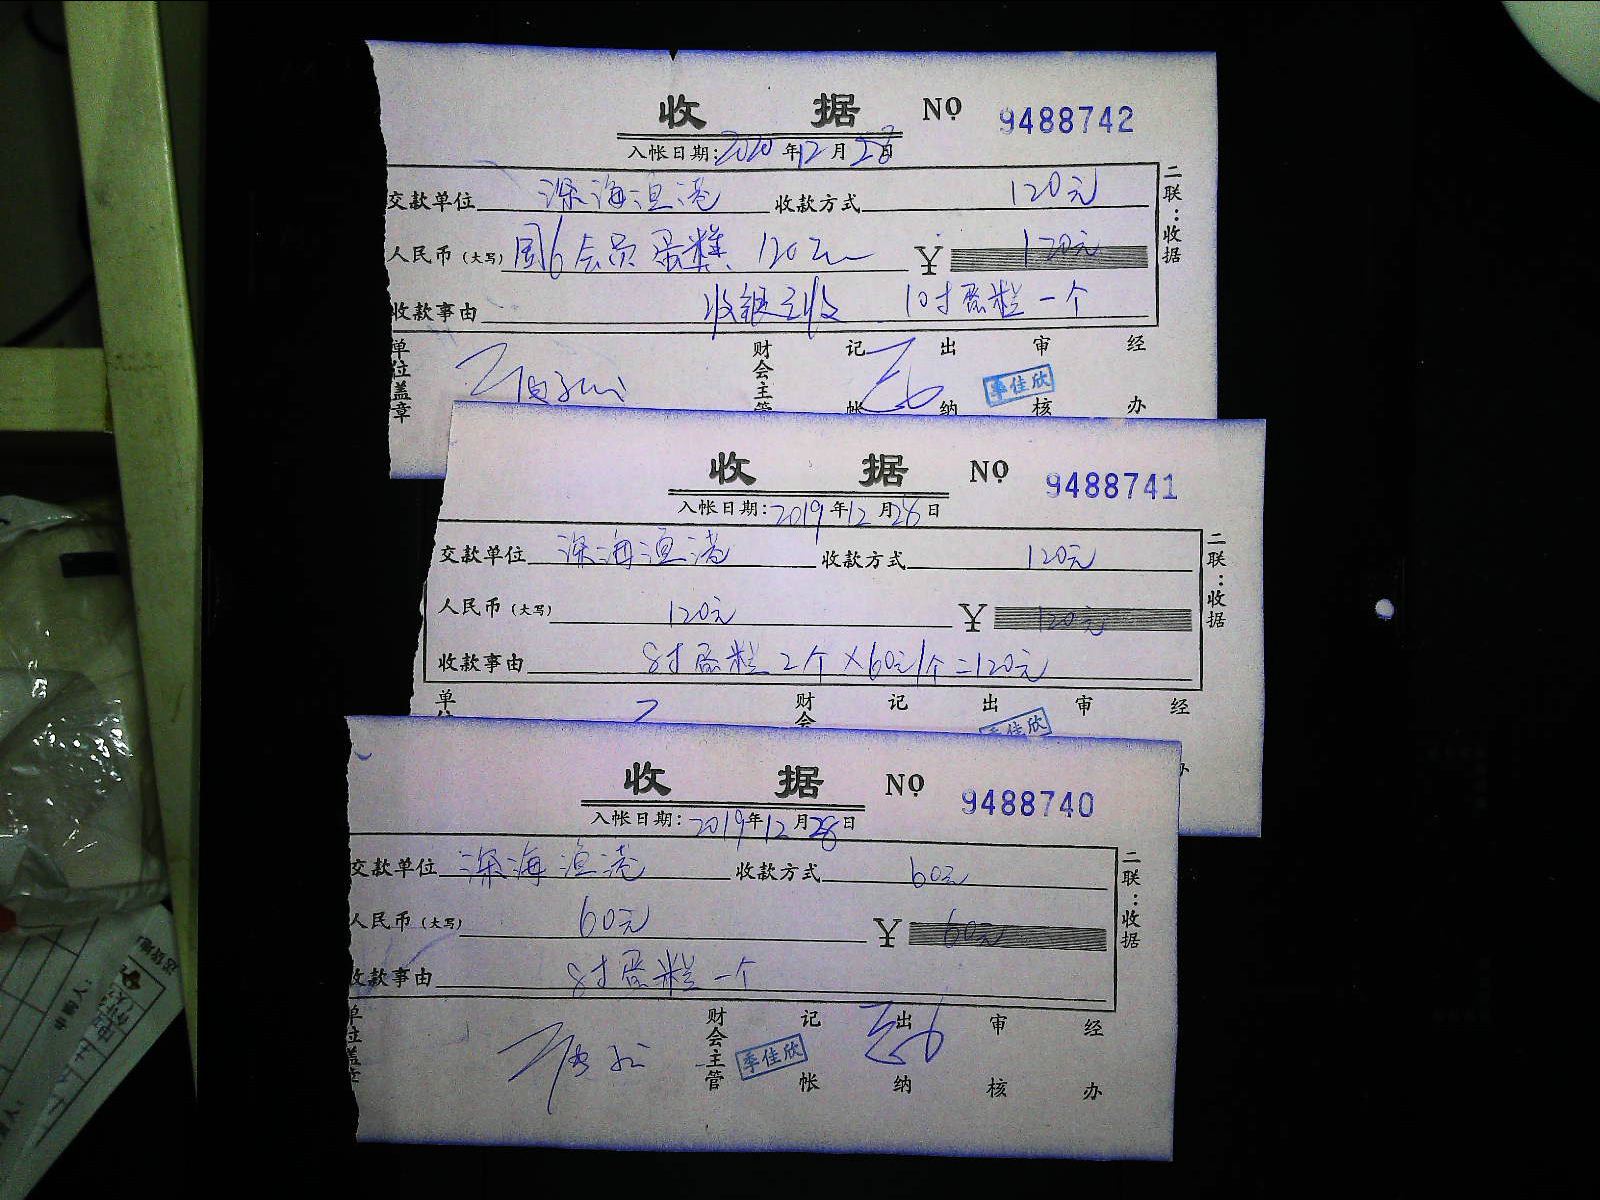 收 据 NO 9488742
入帐日期:2020年12月28日
交款单位 深海渔港 收款方式 120元
人民币(大写) 周6会员蛋糕 120元 ¥ 120元
收款事由 收银已收 10寸蛋糕一个
单位盖章 财会主管 记帐 出纳 审核 经办
季佳欣
二联:收据
收 据 NO 9488741
入帐日期:2019年12月28日
交款单位 深海渔港 收款方式 120元
人民币(大写) 120元 ¥ 120元
收款事由 8寸蛋糕2个×60元/个=120元
单 财会 记 出 审 经
季佳欣
二联:收据
收 据 NO 9488740
入帐日期:2019年12月28日
交款单位 深海渔港 收款方式 60元
人民币(大写) 60元 ¥ 60元
收款事由 8寸蛋糕一个
单位盖章 财会主管 记帐 出纳 审核 经办
季佳欣
二联:收据